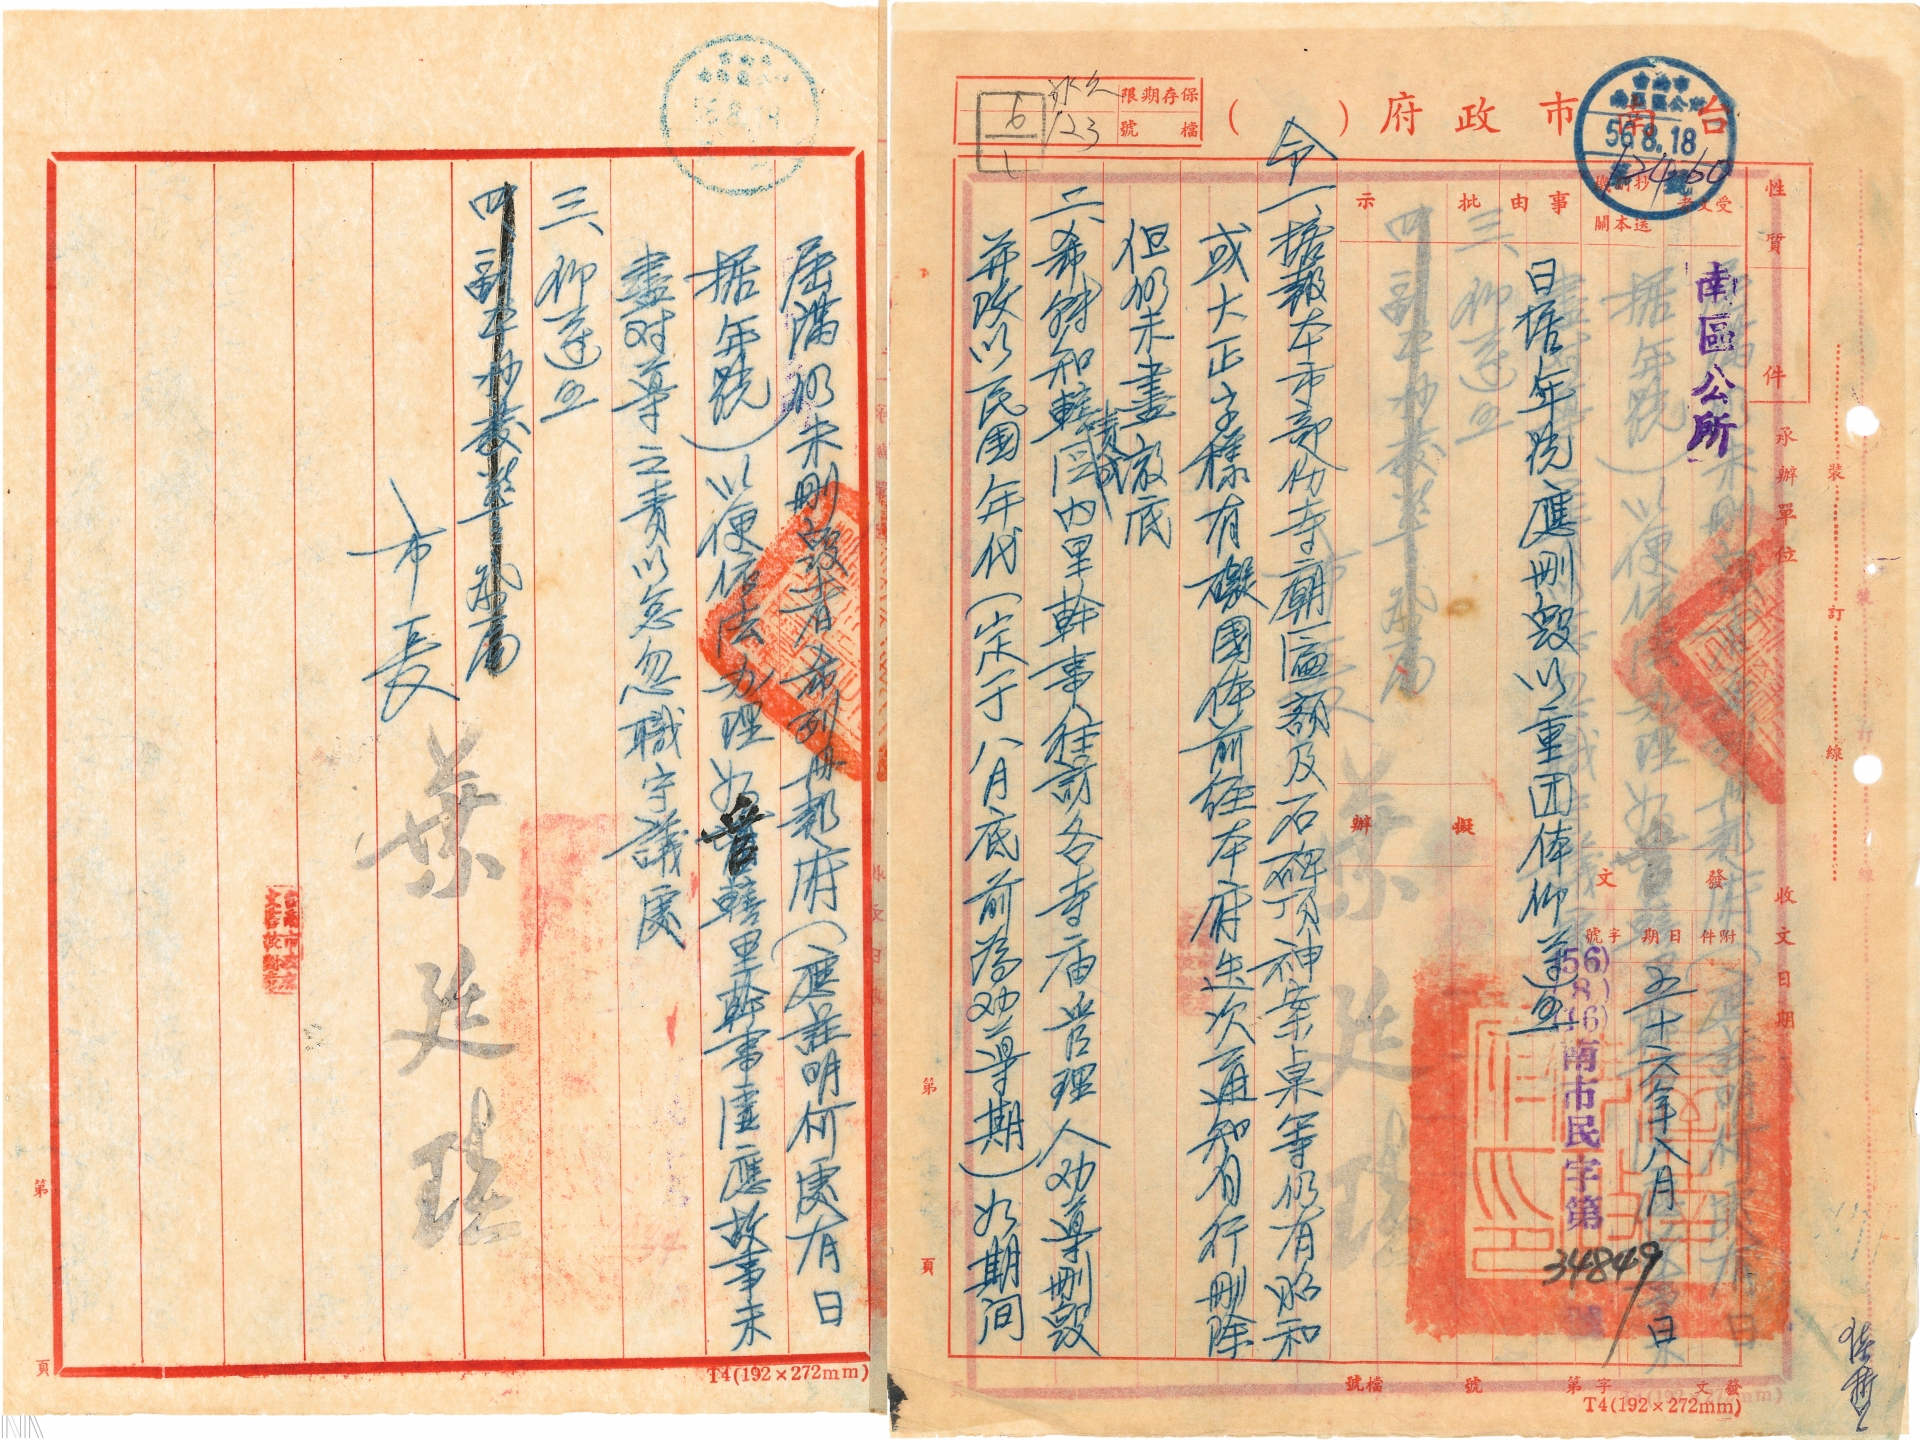 台南市政府（　）令
保存期限
永久
檔號
123
6
1
台南市
南區區公所
56.8.18
12460
號
性質
件
受文者
南區公所
抄送
副本
機關
事由
日據年號應刪毀以重囯体仰遵照
批示
擬辦
承辦單位
收文日期
發文
附件
日期
字號
五十六年八月　日
(56)
(8)
(16)
南市民字第
34849
號
一、據報本市部份寺廟匾額及石碑頂神案桌等仍有昭和
或大正字樣有礙國体前經本府迭次通知有行刪除
但仍未盡澈底
二、希轉知轄區內里幹事往訪各寺庙管理人劝導刪毀
責成
并改以民國年代（定于八月底前為劝導期）如期间
裝
訂
線
第
頁
發文
字
第
號
檔號
T4(192×272mm)
屆滿仍未刪毀者希列冊報府（應註明何處有日
据年號）以便依法办理如管轄里幹事虛應故事未
盡对導之責以怠忽職守議處
三、仰遵照
四、副本抄發警察局
市長
葉廷珪
台南市政府
文書校對章
第
頁
T4(192×272mm)